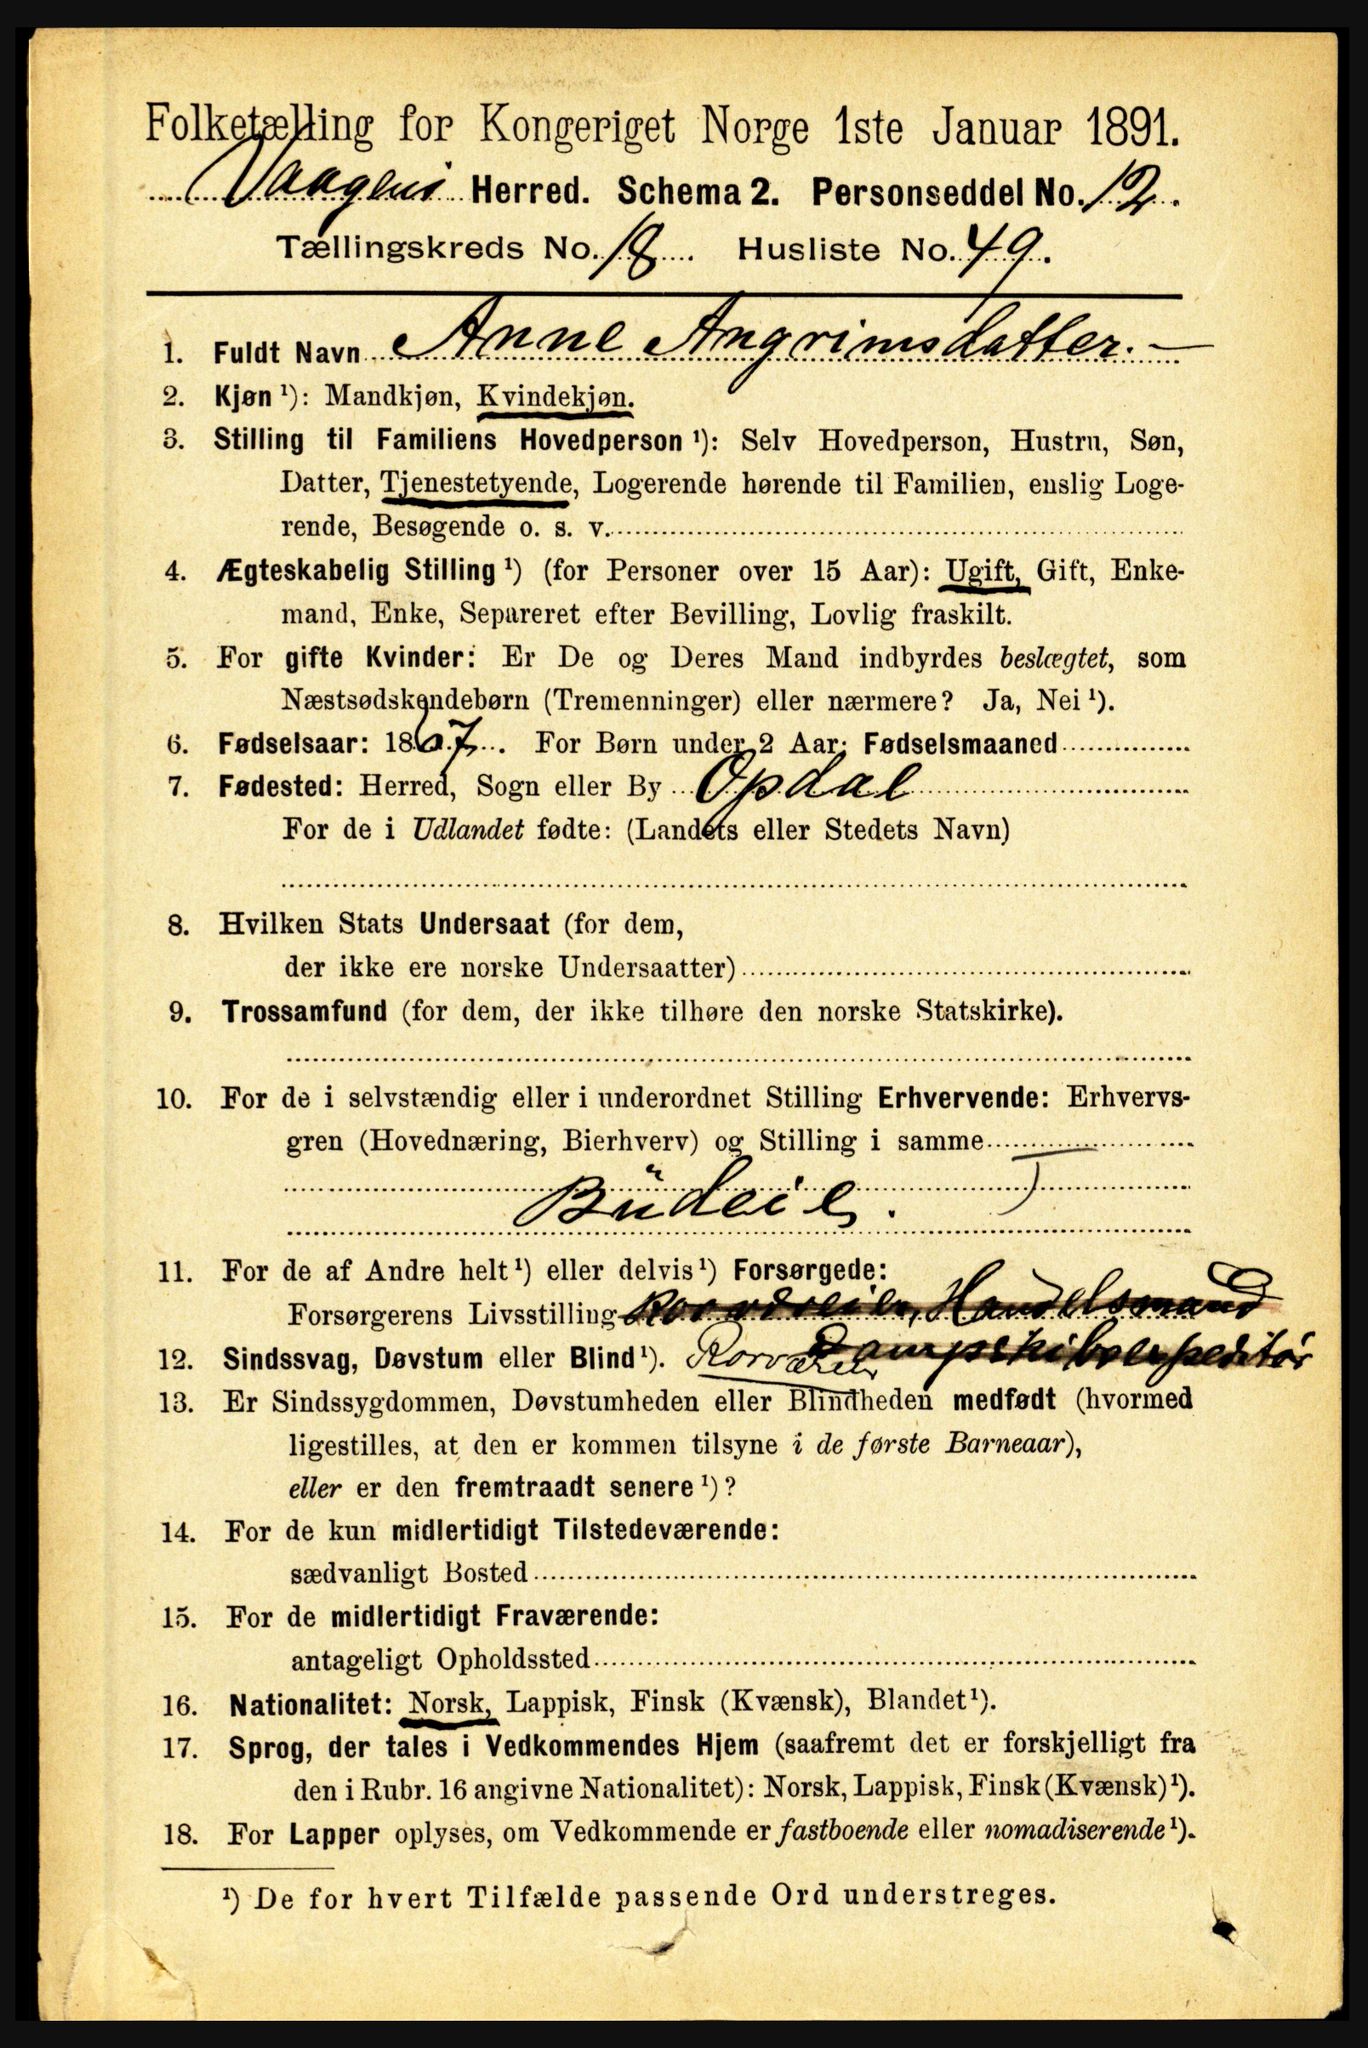 Folketælling for Kongeriget Norge 1ste Januar 1891.
Vaagens Herred. Schema 2. Personseddel No. 12.
Tællingskreds No. 18. Husliste No. 49.
1. Fuldt Navn Anne Angrimsdatter. —
2. Kjøn ¹): Mandkjøn, Kvindekjøn.
3. Stilling til Familiens Hovedperson ¹): Selv Hovedperson, Hustru, Søn,
Datter, Tjenestetyende, Logerende hørende til Familien, enslig Loge-
rende, Besøgende o. s. v.
4. Ægteskabelig Stilling ¹) (for Personer over 15 Aar): Ugift, Gift, Enke-
mand, Enke, Separeret efter Bevilling, Lovlig fraskilt.
5. For gifte Kvinder: Er De og Deres Mand indbyrdes beslægtet, som
Næstsødskendebørn (Tremenninger) eller nærmere? Ja, Nei ¹).
6. Fødselsaar: 1867. For Børn under 2 Aar: Fødselsmaaned
7. Fødested: Herred, Sogn eller By Opdal
For de i Udlandet fødte: (Landets eller Stedets Navn)
8. Hvilken Stats Undersaat (for dem,
der ikke ere norske Undersaatter)
9. Trossamfund (for dem, der ikke tilhøre den norske Statskirke).
10. For de i selvstændig eller i underordnet Stilling Erhvervende: Erhvervs-
gren (Hovednæring, Bierhverv) og Stilling i samme
Büdeie. T
11. For de af Andre helt ¹) eller delvis ¹) Forsørgede:
Forsørgerens Livsstilling Handelsmand
12. Sindssvag, Døvstum eller Blind ¹). Rorværeier Dampskibsexpeditør
13. Er Sindssygdommen, Døvstumheden eller Blindheden medfødt (hvormed
ligestilles, at den er kommen tilsyne i de første Barneaar),
eller er den fremtraadt senere ¹)?
14. For de kun midlertidigt Tilstedeværende:
sædvanligt Bosted
15. For de midlertidigt Fraværende:
antageligt Opholdssted
16. Nationalitet: Norsk, Lappisk, Finsk (Kvænsk), Blandet ¹).
17. Sprog, der tales i Vedkommendes Hjem (saafremt det er forskjelligt fra
den i Rubr. 16 angivne Nationalitet): Norsk, Lappisk, Finsk (Kvænsk) ¹).
18. For Lapper oplyses, om Vedkommende er fastboende eller nomadiserende ¹).
¹) De for hvert Tilfælde passende Ord understreges.